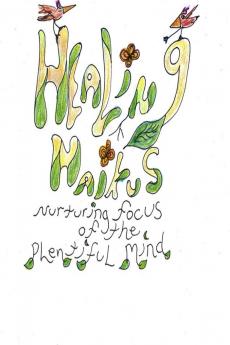 Healing
Haikus
Nurturing focus
of the
Plentiful Mind